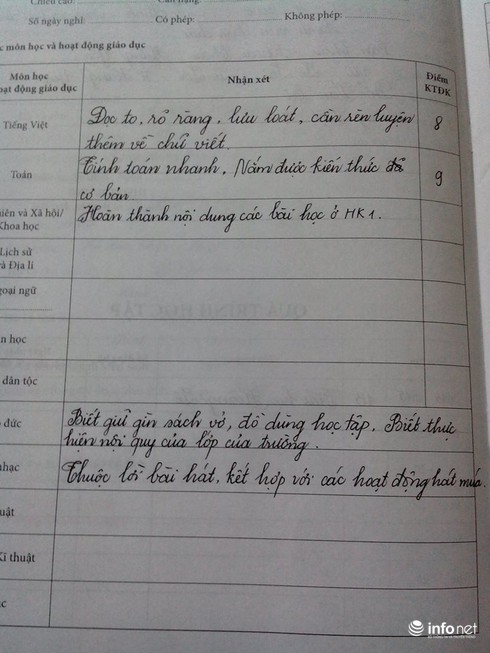 Chiều cao:
Cân nặng:
Số ngày nghỉ:
Có phép:
Không phép:
c môn học và hoạt động giáo dục
Môn học
oạt động giáo dục
Nhận xét
Điểm
KTĐK
Tiếng Việt
Đọc to, rỏ ràng, lưu loát, cần rèn luyện
thêm về chữ viết.
8
Toán
Tính toán nhanh, Nắm được kiến thức đã
cơ bản.
9
hiên và Xã hội/
Khoa học
Hoàn thành nội dung các bài học ở HK1.
Lịch sử
và Địa lí
goại ngữ
n học
dân tộc
o đức
Biết giữ gìn sách vở, đồ dùng học tập, Biết thực
hiện nội quy của lớp của trường.
nhạc
Thuộc lời bài hát, kết hợp với các hoạt động hát múa.
uật
Kĩ thuật
c
infonet